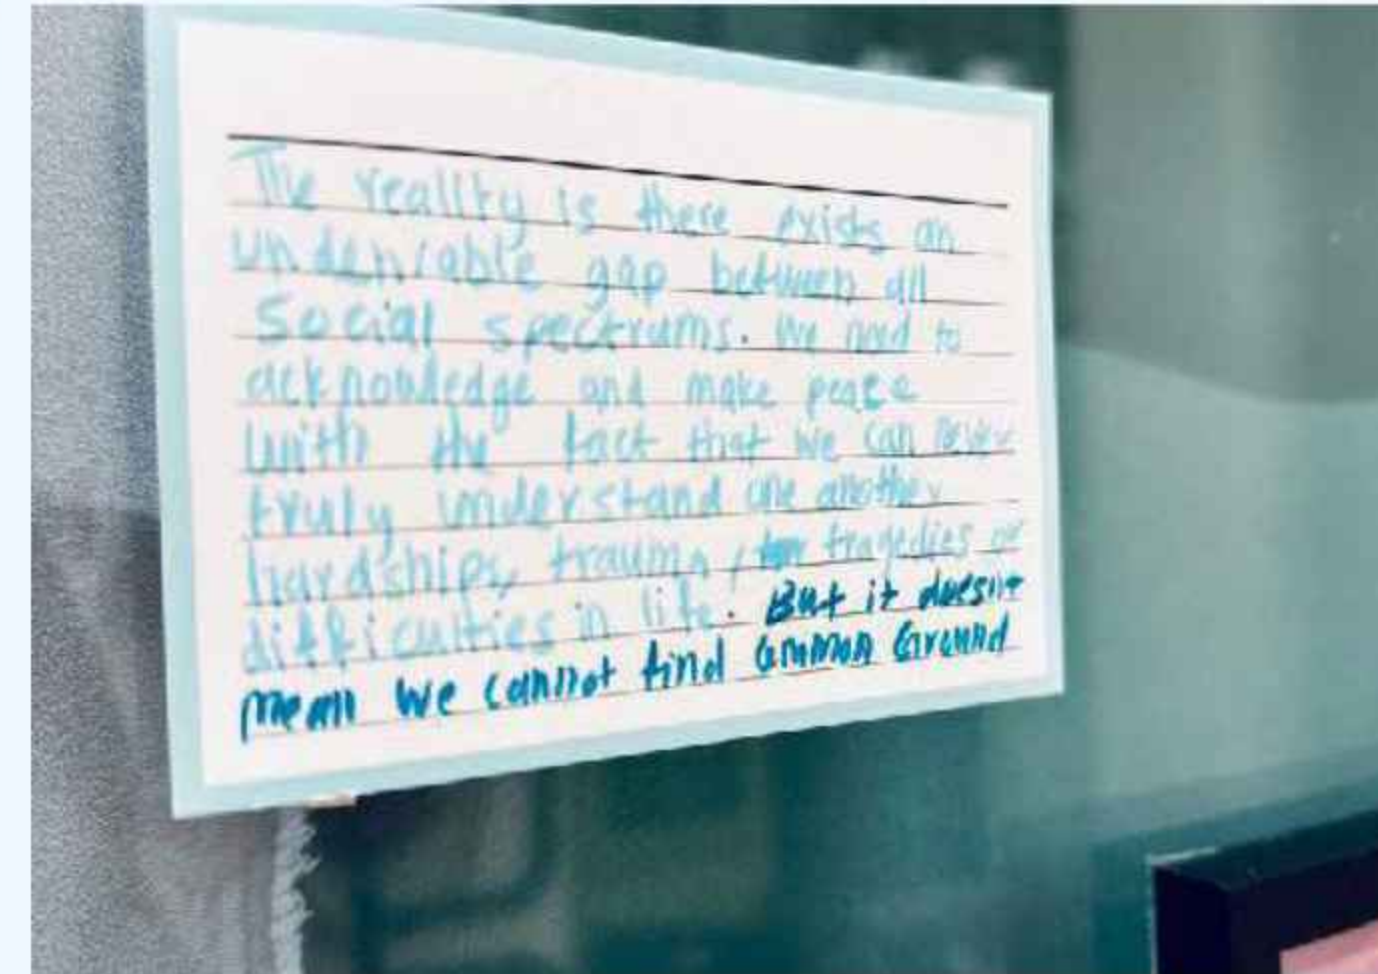 The reality is there exists an
undeniable gap between all
social spectrums. We need to
acknowledge and make peace
with the fact that we can never
truly understand one another
hardships, trauma, / tragedies or
difficulties in life. But it doesn't
mean we cannot find Common Ground